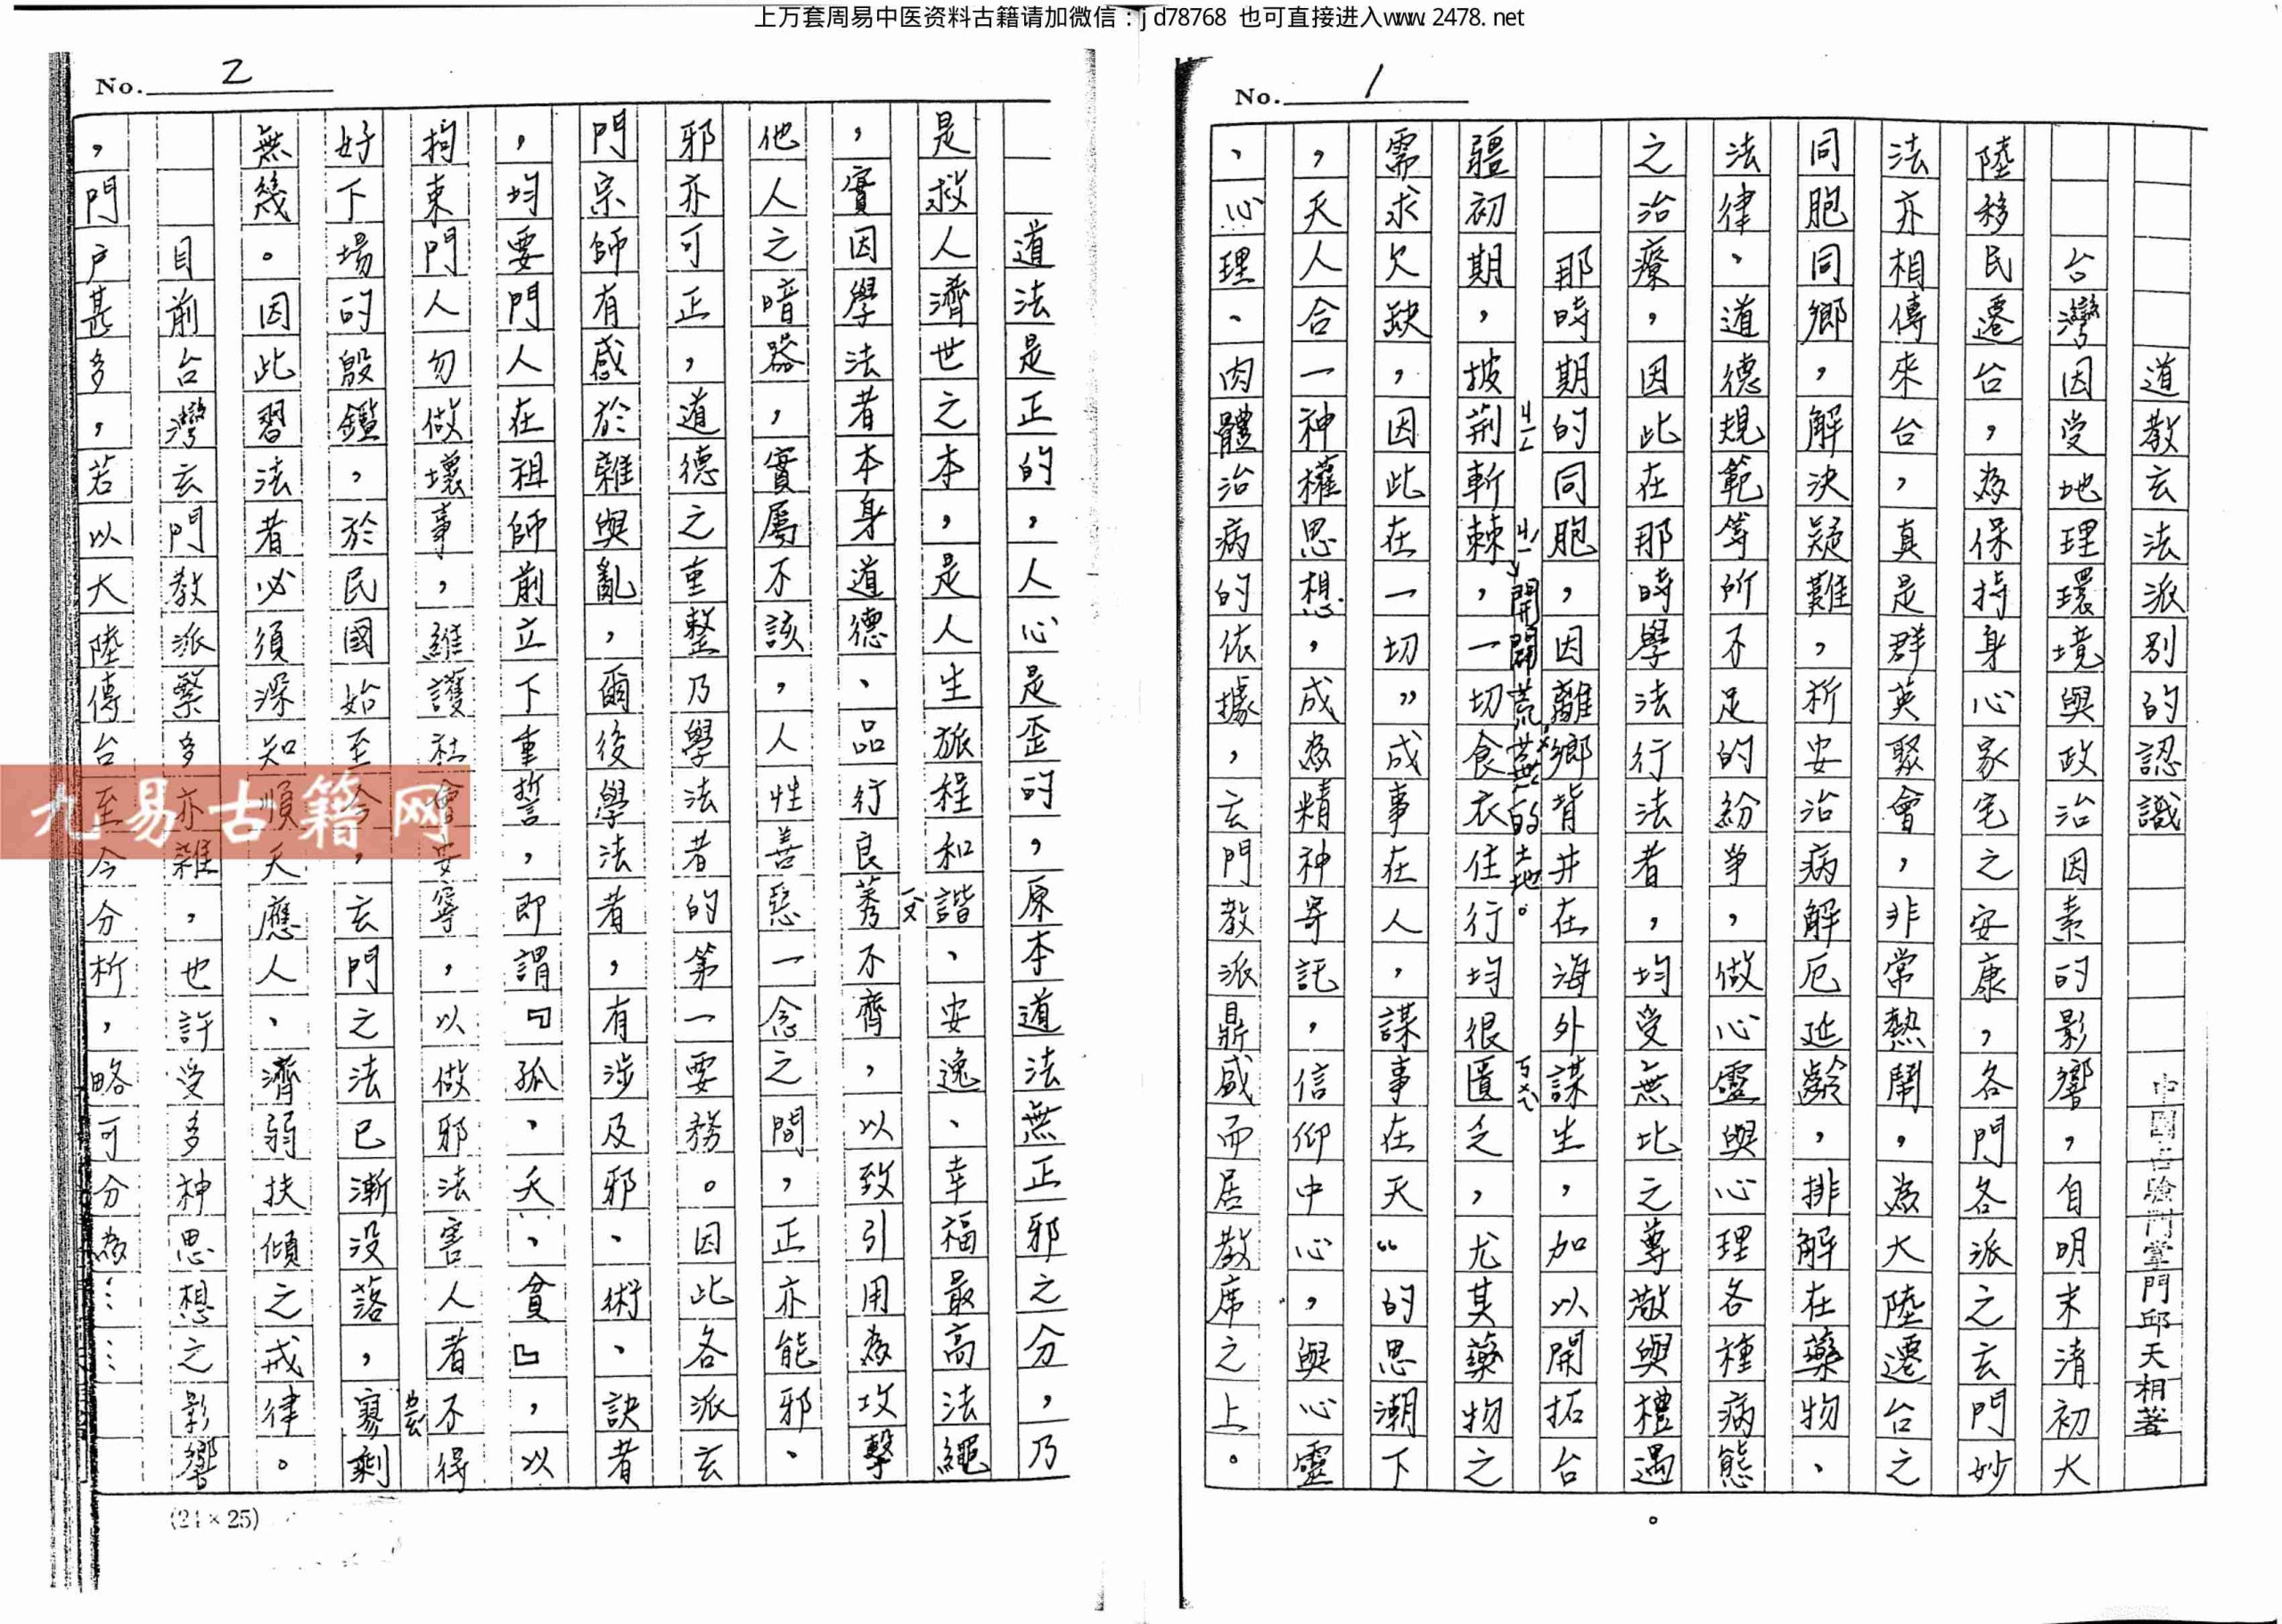 上万套周易中医资料古籍请加微信：jd78768 也可直接进入www.2478.net
No. 1
道教玄法派別的認識
中國古驗門掌門邱天相著
台灣因受地理環境與政治因素的影響，自明末清初大
陸移民遷台，為保持身心家宅之安康，各門各派之玄門妙
法亦相傳來台，真是群英聚會，非常熱鬧，為大陸遷台之
同胞同鄉，解決疑難，析安治病，解厄延齡，排解在藥物、
法律、道德規範等所不足的紛爭，做心靈與心理各種病態
之治療，因此在那時學法行法者，均受無比之尊敬與禮遇。
那時期的同胞，因離鄉背井在海外謀生，加以開拓台
ㄐㄧㄥ ㄐㄧˊ開闢荒蕪的土地。 ㄎㄨㄟˋ
疆初期，披荊斬棘，一切食衣住行均很匱乏，尤其藥物之
需求欠缺，因此在一切”成事在人，謀事在天“的思潮下
，天人合一神權思想，成為精神寄託，信仰中心，與心靈
、心理、肉體治病的依據，玄門教派鼎盛而居教席之上。
No. 2
道法是正的，人心是歪的，原本道法無正邪之分，乃
是救人濟世之本，是人生旅程和諧、安逸、幸福最高法繩
，實因學法者本身道德、品行良莠不齊，以致引用為攻擊
他人之暗器，實屬不該，人性善惡一念之間，正亦能邪、
邪亦可正，道德之重整乃學法者的第一要務。因此各派玄
門宗師有感於雜與亂，爾後學法者，有涉及邪、術、訣者
，均要門人在祖師前立下重誓，即謂『孤、夭、貧』，以
拘束門人勿做壞事，維護社會安寧，以做邪法害人者不得
好下場的殷鑑，於民國始至今，玄門之法已漸沒落，寥剩
無幾。因此習法者必須深知順天應人、濟弱扶傾之戒律。
目前台灣玄門教派繁多亦雜，也許受多神思想之影響
，門戶甚多，若以大陸傳台至今分析，略可分為……
(24×25)
九易古籍网